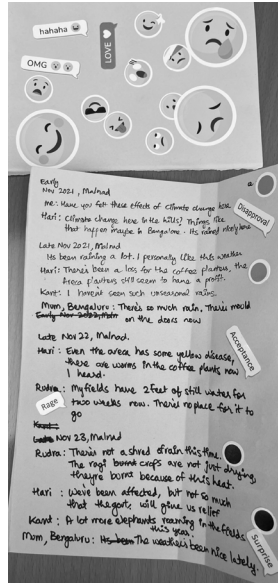 hahaha
LOVE
OMG
Early
Nov 2021, Malnad
Me: Have you felt these effects of climate change here
Hari: Climate change here in the hills? Things like
that happen maybe in Bangalore. Its rained nicely here
Late Nov 2021, Malnad
Its been raining a lot. I personally like this weather
Hari: There's been a loss for the coffee planters, the
Areca planters still seem to have a profit.
Kant: I havent seen such unseasonal rains.
Mum, Bengaluru: There's so much rain, There's mould
Early Nov 2022, Maln
on the doors now
Late Nov 22, Malnad.
Hari: Even the areca has some yellow disease,
there are worms in the coffee plants now
I heard.
Rudra: My fields have 2 feet of still water for
two weeks now. There's no place for it to
go
Kant:
Late Nov 23, Malnad
Rudra: There's not a shred of rain this time.
The ragi burnt crops are not just drying,
they're burnt because of this heat.
Hari: We've been affected, but not so much
that the govt. will give us relief
Kant: A lot more elephants roaming in the fields
this year.
Mom, Bengaluru: Its been The weather's been nice lately.
Disapproval
Acceptance
Rage
Surprise